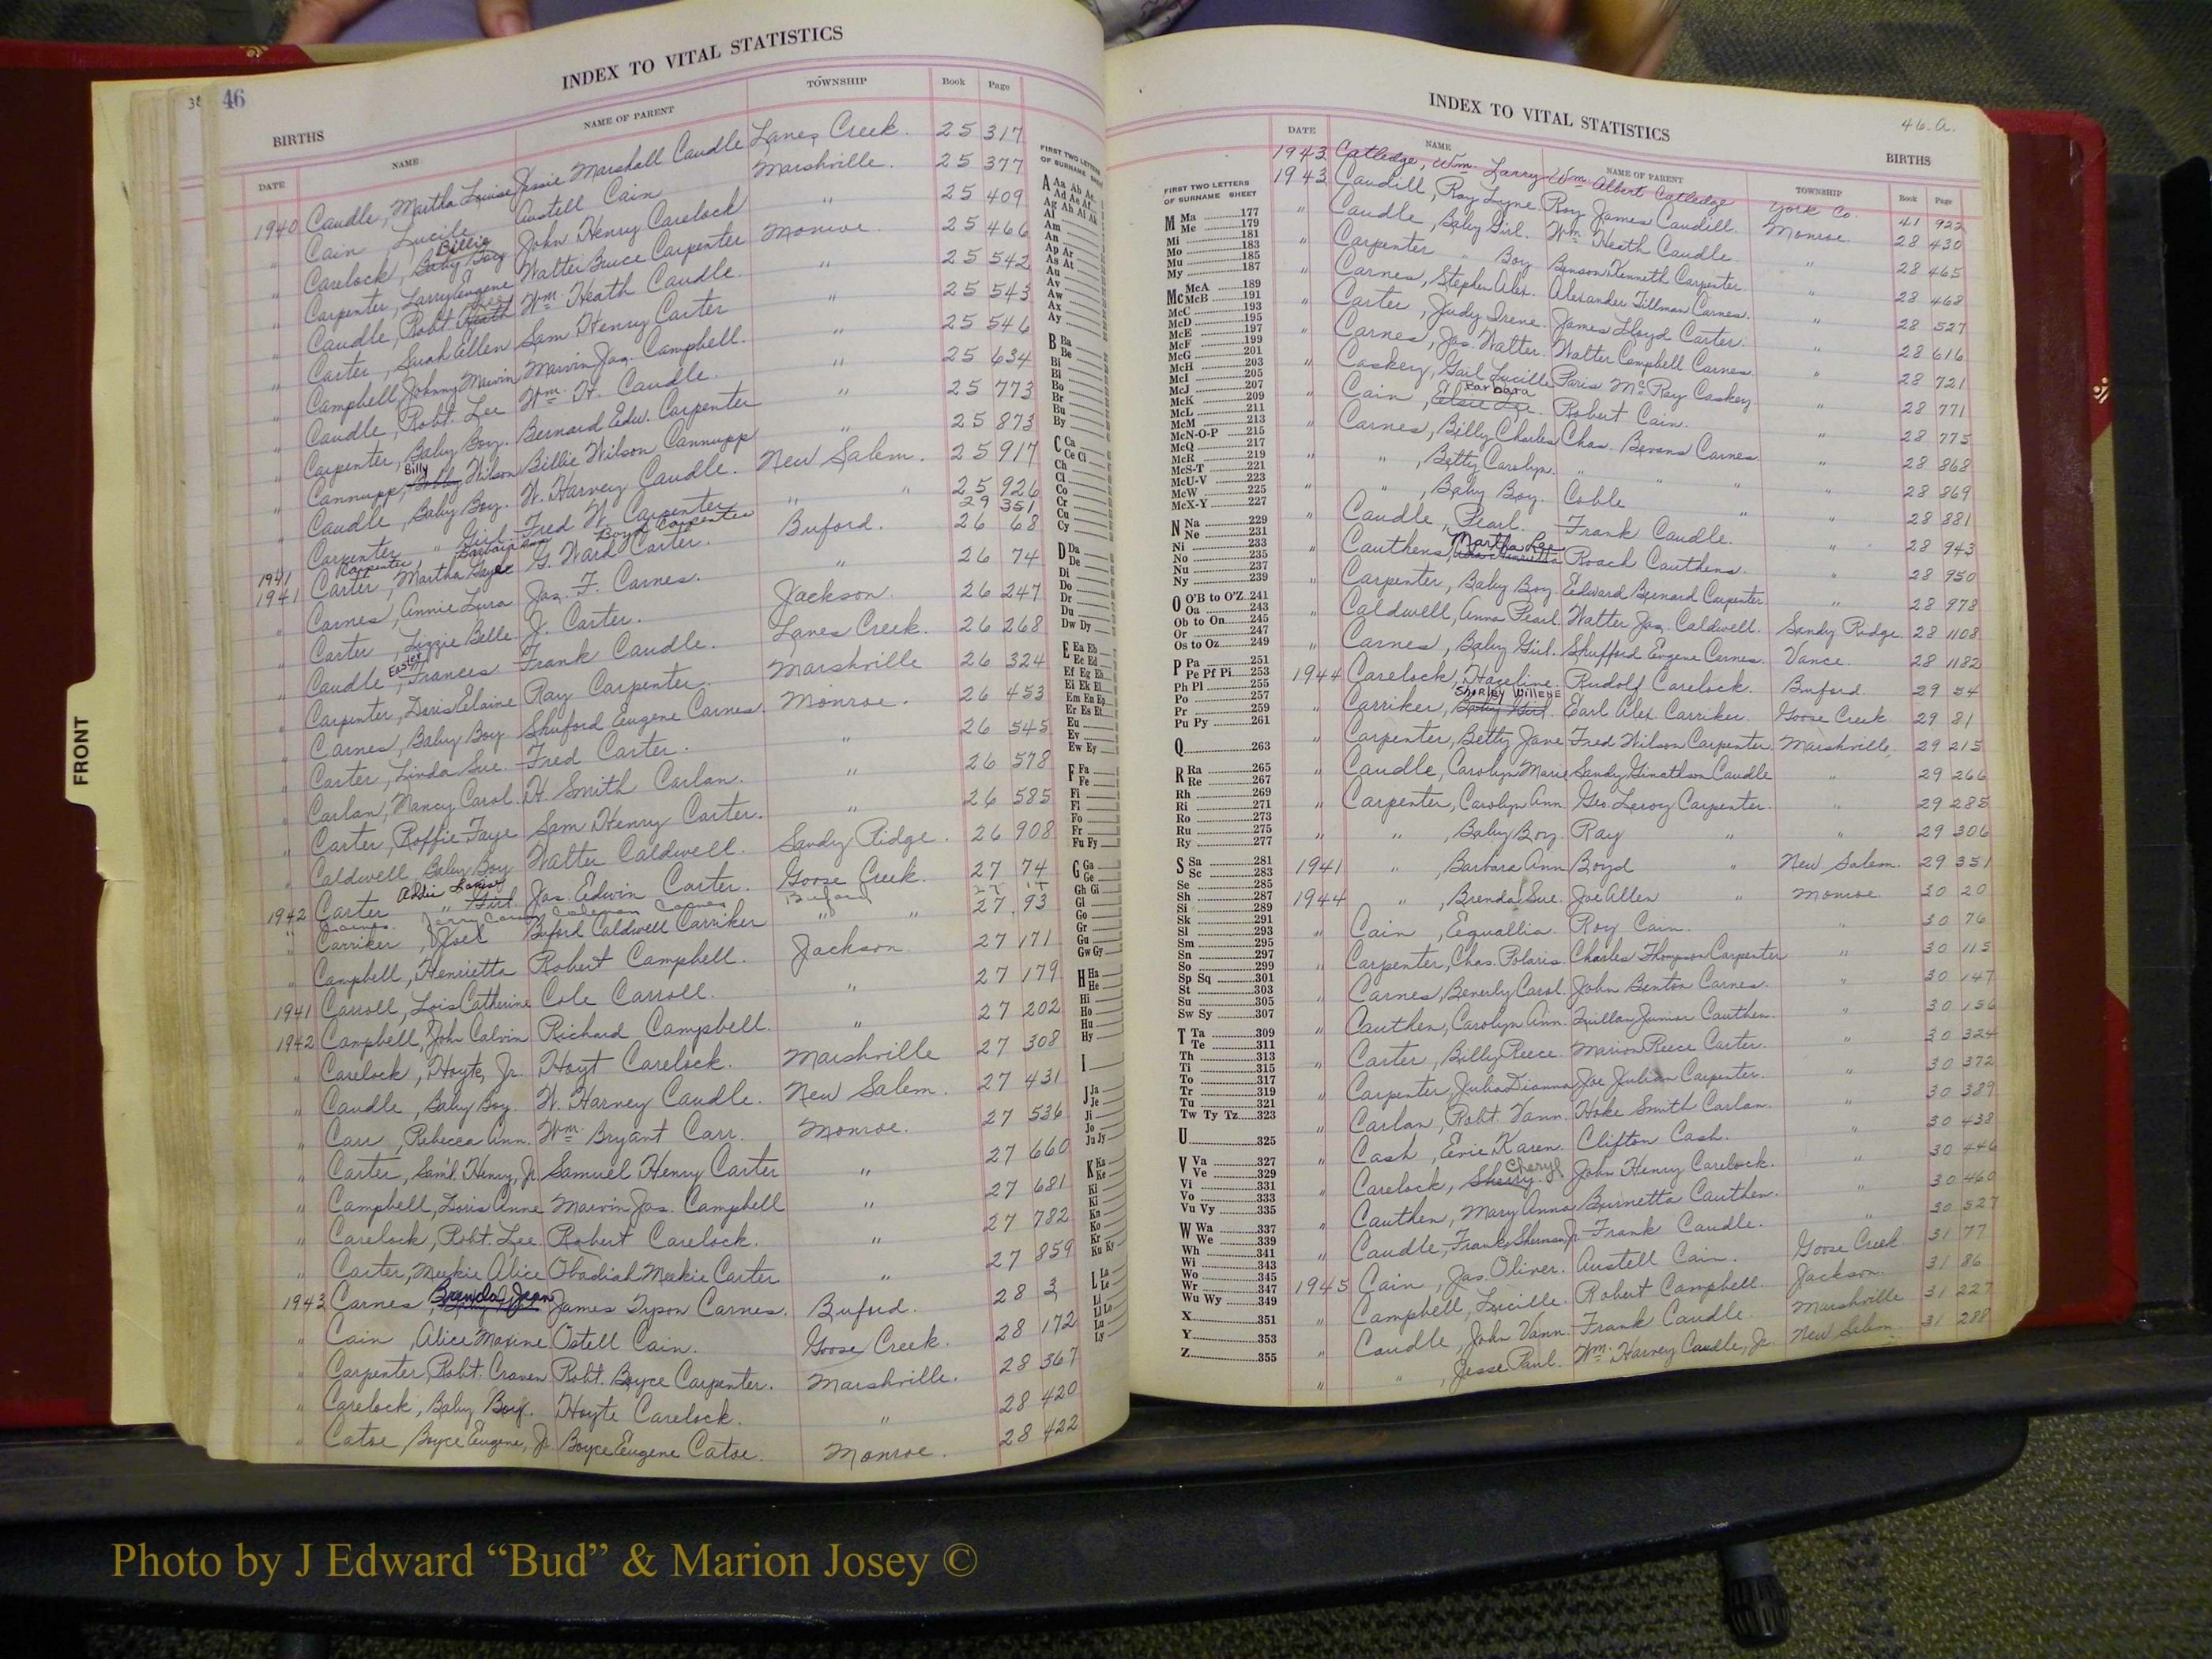 46
INDEX TO VITAL STATISTICS
BIRTHS
DATE NAME NAME OF PARENT TOWNSHIP Book Page
1940 Caudle, Martha Louise Jessie Marshall Caudle Lanes Creek. 25 317
" Cain Lucile Austell Cain Marshville. 25 377
" Carelock, Baby Boy Billie John Henry Carelock " 25 409
" Carpenter, Larry Eugene Walter Bruce Carpenter Monroe. 25 466
" Caudle, Robt. Wm. Heath Caudle " 25 542
" Carter, Sarah Ellen Sam Henry Carter " 25 543
" Campbell, Johnny Marvin Marvin Jas. Campbell. " 25 546
" Caudle, Robt. Lee Wm. H. Caudle. " 25 634
" Carpenter, Baby Boy. Bernard Edw. Carpenter " 25 773
" Cannupp, Bobby Billy Wilson Billie Wilson Cannupp " 25 873
" Caudle, Baby Boy. W. Harvey Caudle. New Salem. 25 917
" Carpenter " Girl Fred W. Carpenter " " 25 926
1941 Carpenter, Barbara Ann Boyd Carpenter 29 351
1941 Carter, Martha Gayle G. Ward Carter. Buford. 26 68
" Carnes, Annie Lura Jas. F. Carnes. " 26 74
" Carter, Lizzie Belle J. Carter. Jackson. 26 247
" Caudle, Easter Frances Frank Caudle. Lanes Creek. 26 268
" Carpenter, Doris Elaine Ray Carpenter. Marshville 26 324
" Carnes, Baby Boy Shuford Eugene Carnes. Monroe. 26 453
" Carter, Linda Sue. Fred Carter. " 26 545
" Carlan, Nancy Carol. H. Smith Carlan. " 26 578
" Carter, Roffie Faye Sam Henry Carter. " 26 585
" Caldwell, Baby Boy Walter Caldwell. Sandy Ridge. 26 908
1942 Carter " Girl Addie Jas. Edwin Carter. Goose Creek. 27 74
Carnes, Jerry Coleman Carnes Buford
" Carriker, Joel Buford Caldwell Carriker " " 27 93
" Campbell, Henrietta Robert Campbell. Jackson 27 171
1941 Carroll, Lois Catherine Cole Carroll. " 27 179
1942 Campbell, John Calvin Richard Campbell. " 27 202
" Carelock, Hoyte, Jr. Hoyt Carelock. Marshville 27 308
" Caudle, Baby Boy. W. Harvey Caudle. New Salem. 27 431
" Carr, Rebecca Ann. Wm. Bryant Carr. Monroe. 27 536
" Carter, Sam'l. Henry, Jr. Samuel Henry Carter " 27 660
" Campbell, Doris Anne Marvin Jas. Campbell " 27 681
" Carelock, Robt. Lee Robert Carelock. " 27 782
" Carter, Meekie Alice Obadiah Meekie Carter " 27 859
1943 Carnes, Brenda Jean James Tyson Carnes. Buford. 28 3
" Cain, Alice Maxine Ostell Cain. Goose Creek. 28 172
" Carpenter, Robt. Craven Robt. Boyce Carpenter. Marshville. 28 367
" Carelock, Baby Boy. Hoyte Carelock. " 28 420
" Catoe, Boyce Eugene, Jr. Boyce Eugene Catoe. Monroe. 28 422
FRONT
FIRST TWO LETTERS
OF SURNAME
A Aa Ab Ac
Ad Ae Af
Ag Ah Ai Ak
Al
Am
An
Ap Ar
As At
Au
Av
Aw
Ax
Ay
B Ba
Be
Bi
Bl
Bo
Br
Bu
By
C Ca
Ce Ci
Ch
Cl
Co
Cr
Cu
Cy
D Da
De
Di
Do
Dr
Du
Dw Dy
E Ea Eb
Ec Ed
Ef Eg Eh
Ei Ek El
Em En Ep
Er Es Et
Eu
Ev
Ew Ey
F Fa
Fe
Fi
Fl
Fo
Fr
Fu Fy
G Ga
Ge
Gh Gi
Gl
Go
Gr
Gu
Gw Gy
H Ha
He
Hi
Ho
Hu
Hy
I
J Ja
Je
Ji
Jo
Ju Jy
K Ka
Ke
Ki
Kl
Kn
Ko
Kr
Ku Ky
L La
Le
Li
Ll Lo
Lu
Ly
INDEX TO VITAL STATISTICS
46.a.
BIRTHS
DATE NAME NAME OF PARENT TOWNSHIP Book Page
1943 Catledge, Wm. Larry Wm. Albert Catledge York Co. 41 922
1943 Caudill, Roy Lyne. Roy James Caudill. Monroe. 28 430
" Caudle, Baby Girl. Wm. Heath Caudle. " 28 465
" Carpenter " Boy Benson Kenneth Carpenter " 28 468
" Carnes, Stephen Alex. Alexander Tillman Carnes. " 28 527
" Carter, Judy Irene. James Lloyd Carter. " 28 616
" Carnes, Jas. Walter. Walter Campbell Carnes. " 28 721
" Caskey, Gail Lucille Paris McRay Caskey " 28 771
" Cain, Barbara Robert Cain. " 28 775
" Carnes, Billy Charles Chas. Bevans Carnes. " 28 868
" " , Betty Carolyn. " " " 28 869
" " , Baby Boy. Coble " " 28 881
" Caudle, Pearl. Frank Caudle. " 28 943
" Cauthens, Martha Roach Cauthens. " 28 950
" Carpenter, Baby Boy. Edward Bernard Carpenter. " 28 978
" Caldwell, Anna Pearl. Walter Jas. Caldwell. Sandy Ridge. 28 1108
" Carnes, Baby Girl. Shufford Eugene Carnes. Vance. 28 1182
1944 Carelock, Hazeline. Rudolf Carelock. Buford. 29 54
" Carriker, Baby Girl. Shirley Willene Earl Alex. Carriker. Goose Creek. 29 81
" Carpenter, Betty Jane Fred Wilson Carpenter. Marshville. 29 215
" Caudle, Carolyn Marie Sandy Caudle " 29 266
" Carpenter, Carolyn Ann. Geo. Leroy Carpenter. " 29 285
" " , Baby Boy. Ray " " 29 306
1941 " , Barbara Ann Boyd " New Salem. 29 351
1944 " , Brenda Sue. Joe Allen " Monroe. 30 20
" Cain, Equallia. Roy Cain. " 30 76
" Carpenter, Chas. Polaris. Charles Thompson Carpenter " 30 115
" Carnes, Beverly Carol. John Benton Carnes. " 30 147
" Cauthen, Carolyn Ann. Quillan Junior Cauthen. " 30 156
" Carter, Billy Reece. Marion Reece Carter. " 30 324
" Carpenter, Julia Dianna Joe Julian Carpenter. " 30 372
" Carlan, Robt. Vann. Hoke Smith Carlan. " 30 389
" Cash, Evie Karen. Clifton Cash. " 30 438
" Carelock, Sherry Cheryl John Henry Carelock. " 30 446
" Cauthen, Mary Anna Burnetta Cauthen. " 30 460
" Caudle, Frank Sherman, Jr. Frank Caudle. " 30 527
1945 Cain, Jas. Oliver. Austell Cain. Goose Creek 31 77
" Campbell, Lucille. Robert Campbell. Jackson. 31 86
" Caudle, John Vann. Frank Caudle. Marshville 31 227
" " , Jesse Paul. Wm. Harvey Caudle, Jr. New Salem. 31 288
FIRST TWO LETTERS
OF SURNAME SHEET
M Ma 177
Me 179
Mi 181
Mo 183
Mu 185
My 187
Mc McA 189
McB 191
McC 193
McD 195
McE 197
McF 199
McG 201
McH 203
McI 205
McJ 207
McK 209
McL 211
McM 213
McN-O-P 215
McQ 217
McR 219
McS-T 221
McU-V 223
McW 225
McX-Y 227
N Na 229
Ne 231
Ni 233
No 235
Nu 237
Ny 239
O O'B to O'Z 241
Oa 243
Ob to On 245
Or 247
Os to Oz 249
P Pa 251
Pe Pf Pi 253
Ph Pl 255
Po 257
Pr 259
Pu Py 261
Q 263
R Ra 265
Re 267
Rh 269
Ri 271
Ro 273
Ru 275
Ry 277
S Sa 281
Sc 283
Se 285
Sh 287
Si 289
Sk 291
Sl 293
Sm 295
Sn 297
So 299
Sp Sq 301
St 303
Su 305
Sw Sy 307
T Ta 309
Te 311
Th 313
Ti 315
To 317
Tr 319
Tu 321
Tw Ty Tz 323
U 325
V Va 327
Ve 329
Vi 331
Vo 333
Vu Vy 335
W Wa 337
We 339
Wh 341
Wi 343
Wo 345
Wr 347
Wu Wy 349
X 351
Y 353
Z 355
Photo by J Edward “Bud” & Marion Josey ©